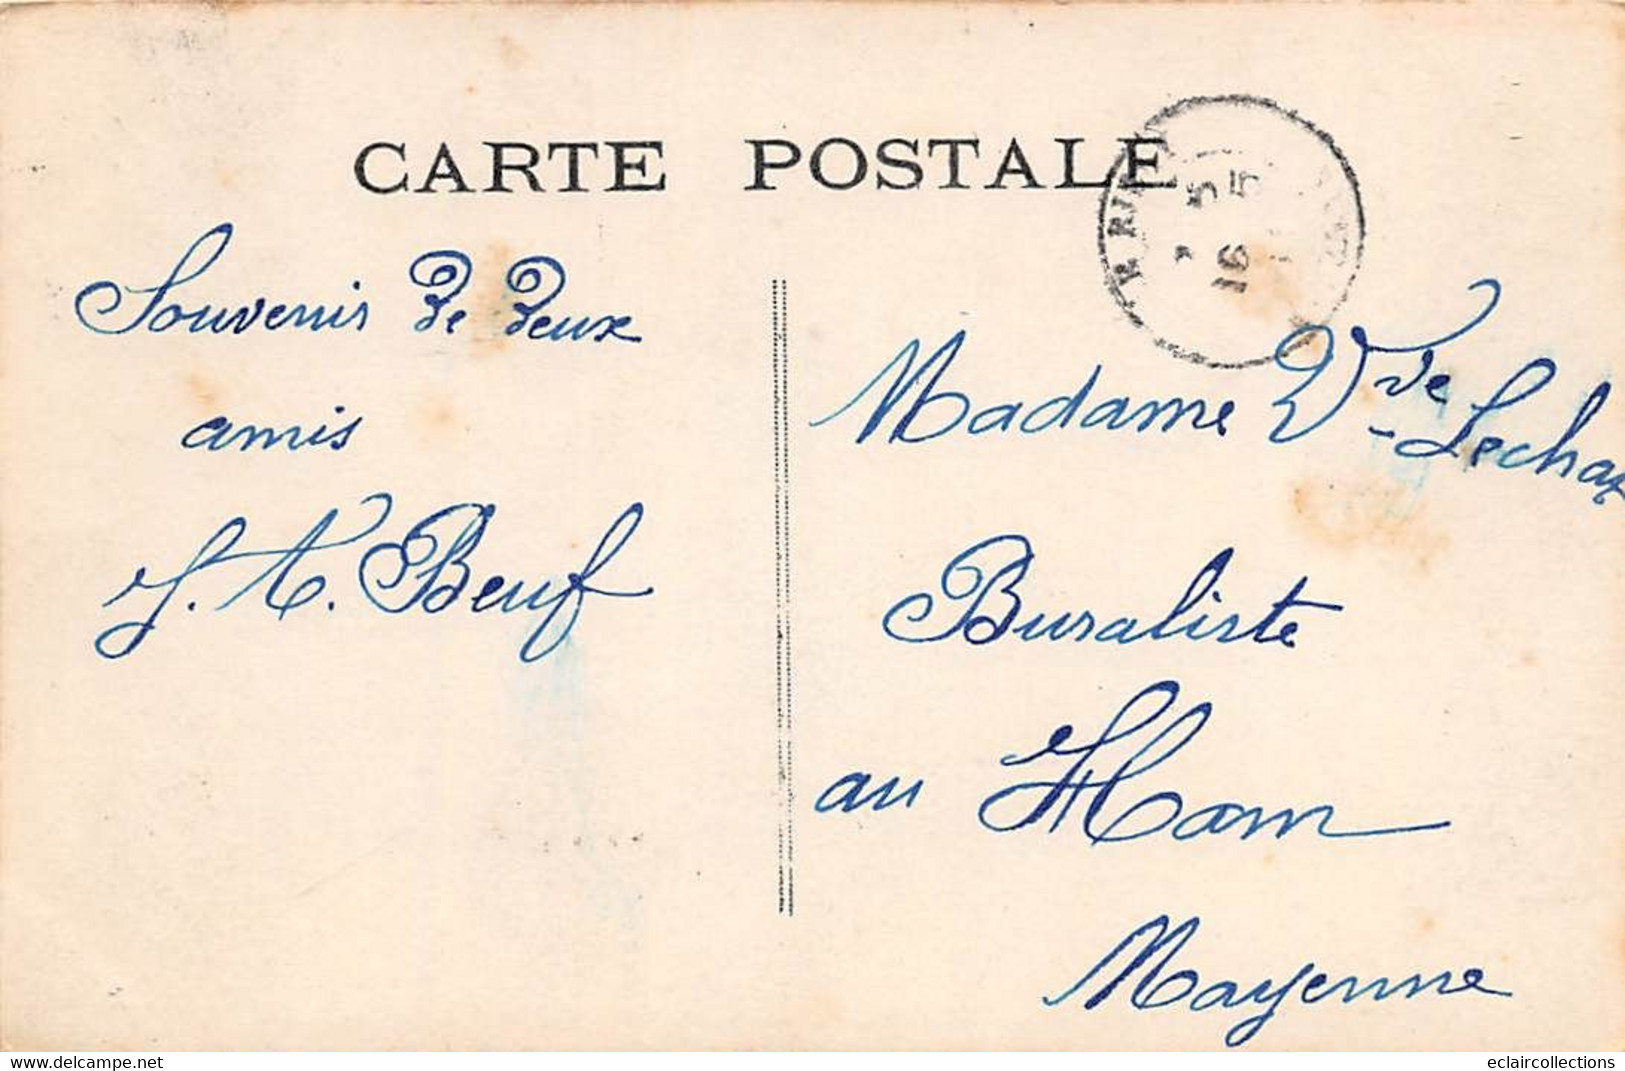 CARTE POSTALE
Souvenir de deux
amis
J. A. Beuf
16 5
Madame Vve
Buraliste
au Ham
Mayenne
www.delcampe.net
eclaircollections